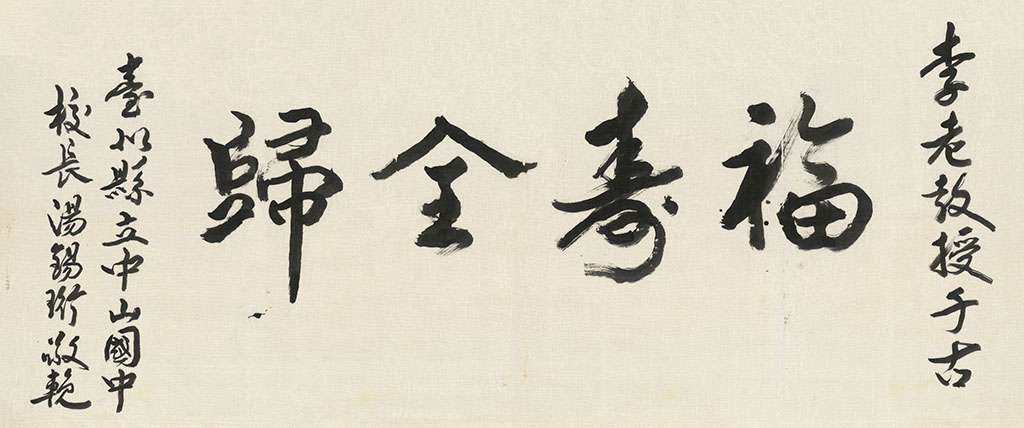 李老教授千古
福壽全歸
臺北縣立中山國中
校長湯錫珩敬輓